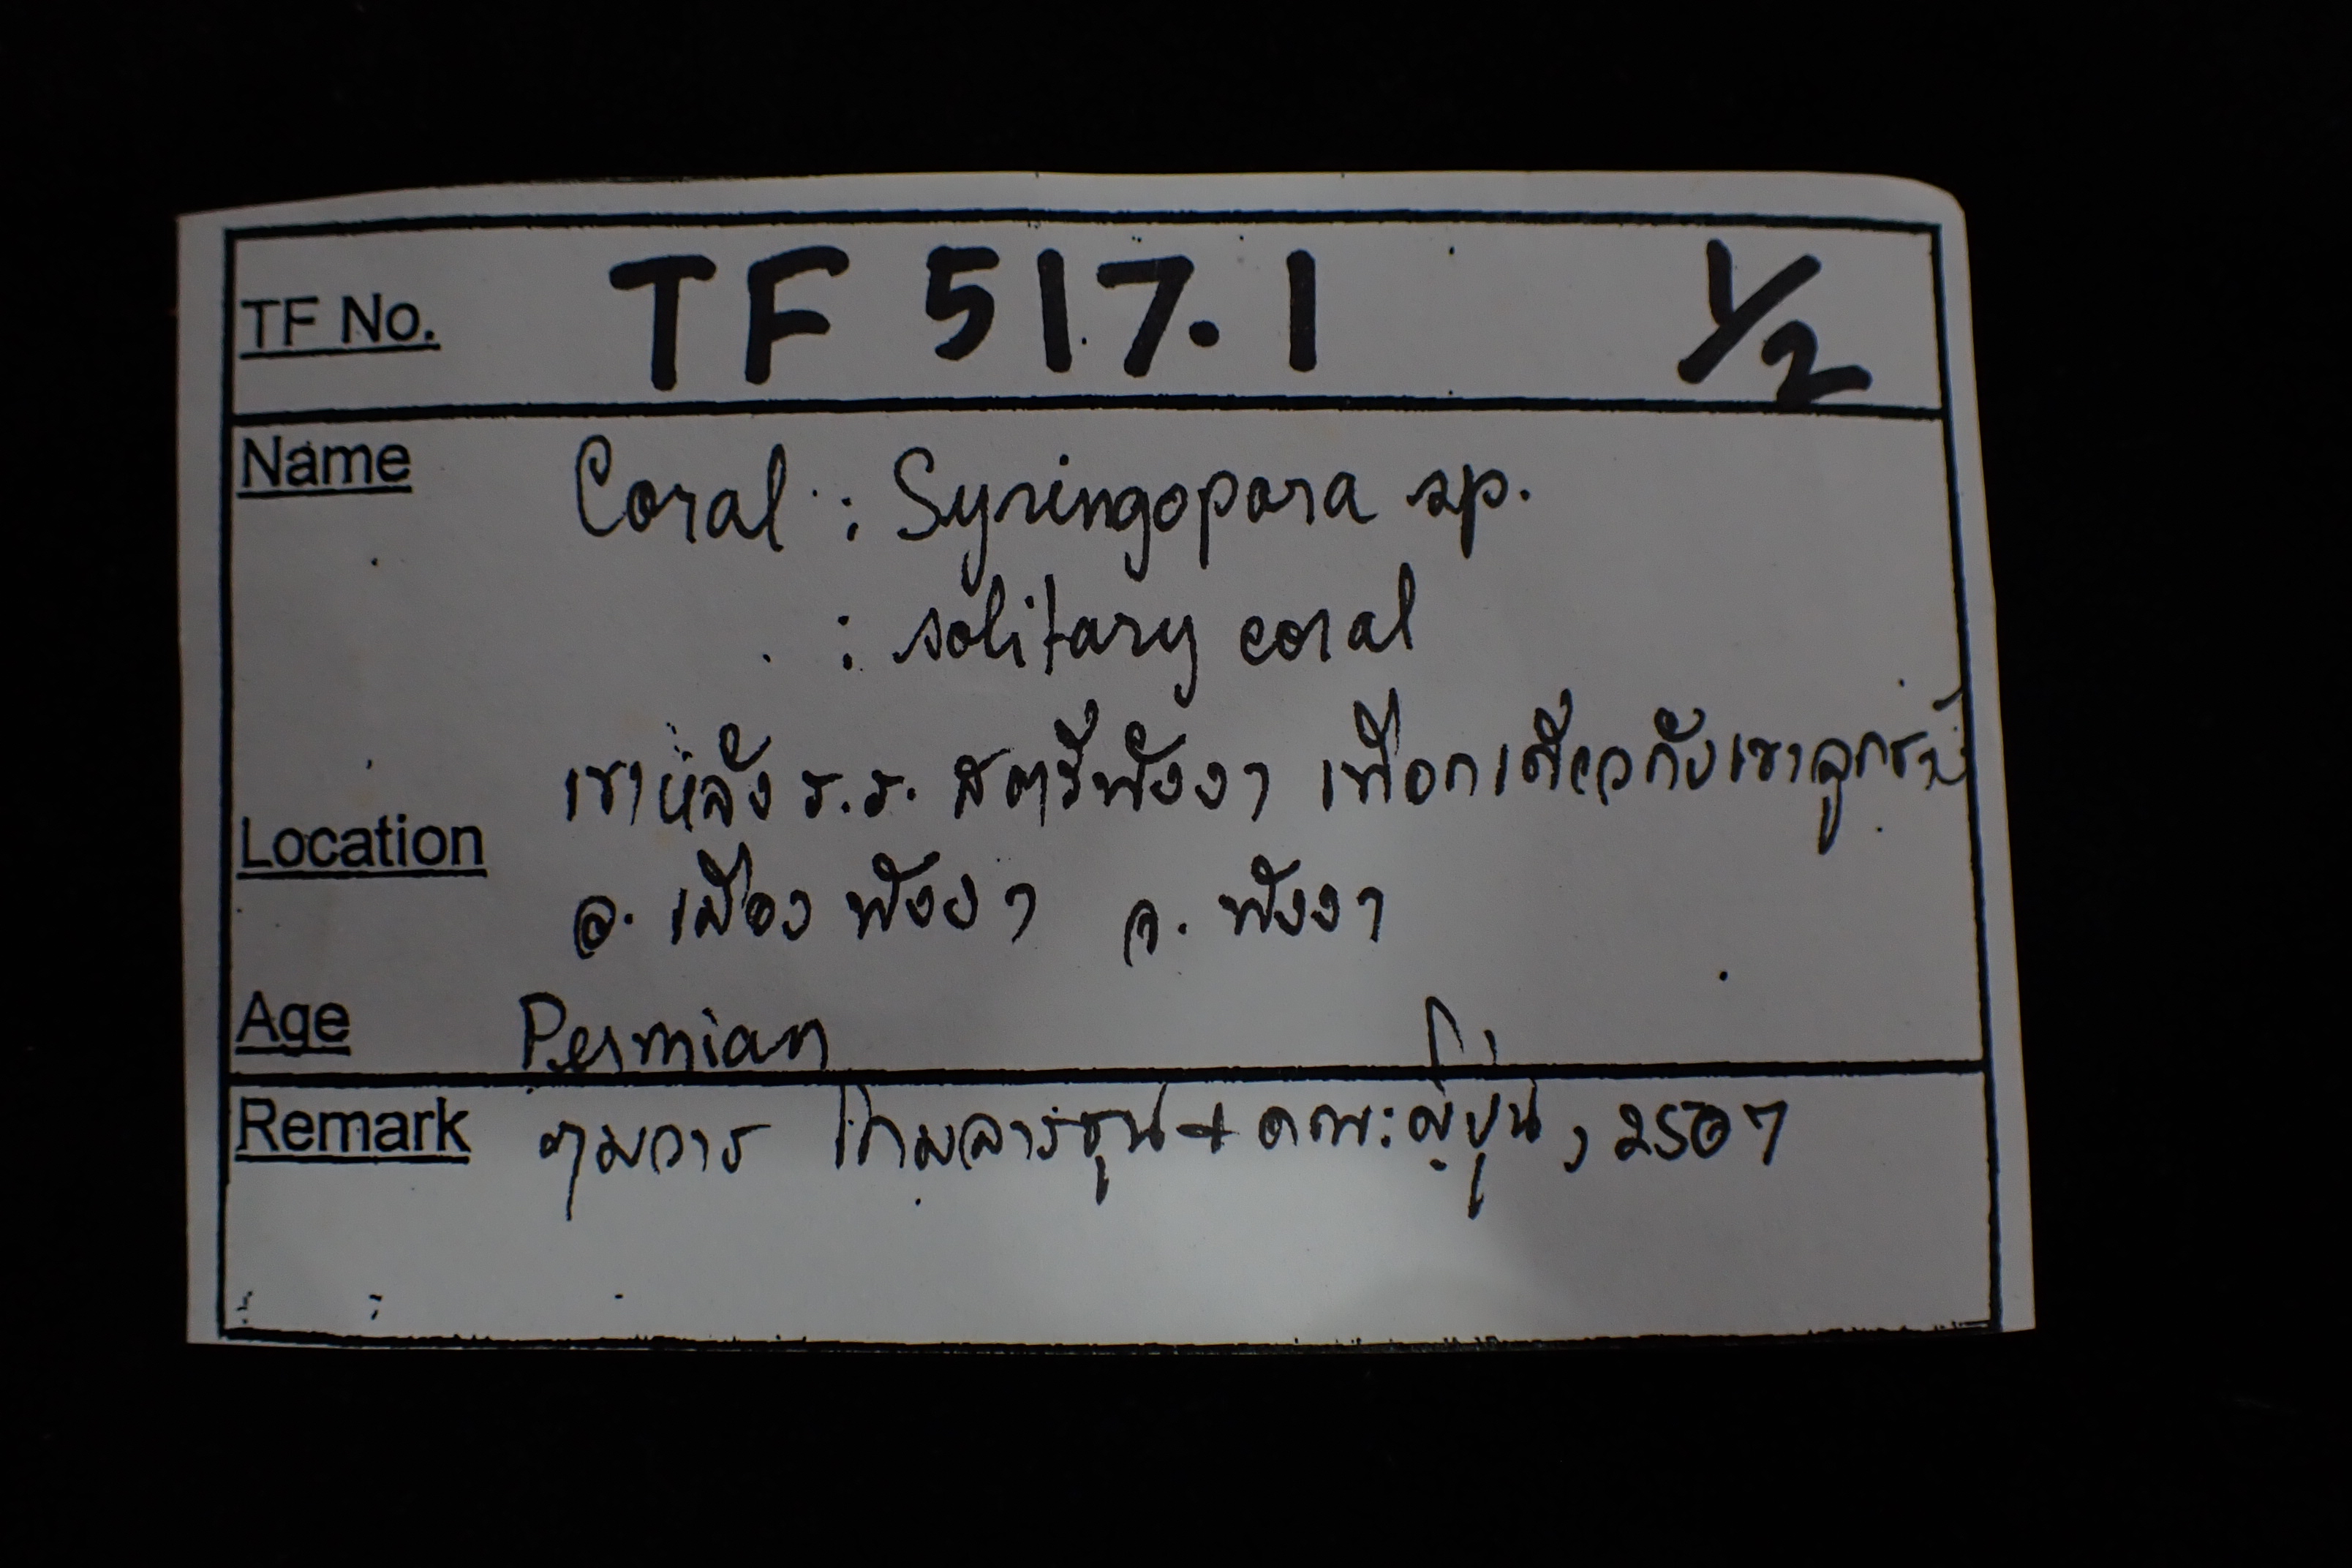 TF No. TF 517.1 1/2
Name Coral : Syringopora sp.
: solitary coral
เขาหลัง ร.ร. สตรีพังงา เทือกเดียวกับเขาลูกช้าง
Location
อ. เมือง พังงา จ. พังงา
Age Permian
Remark กุมภาร โกมลารชุน + คณะญี่ปุ่น, 2507